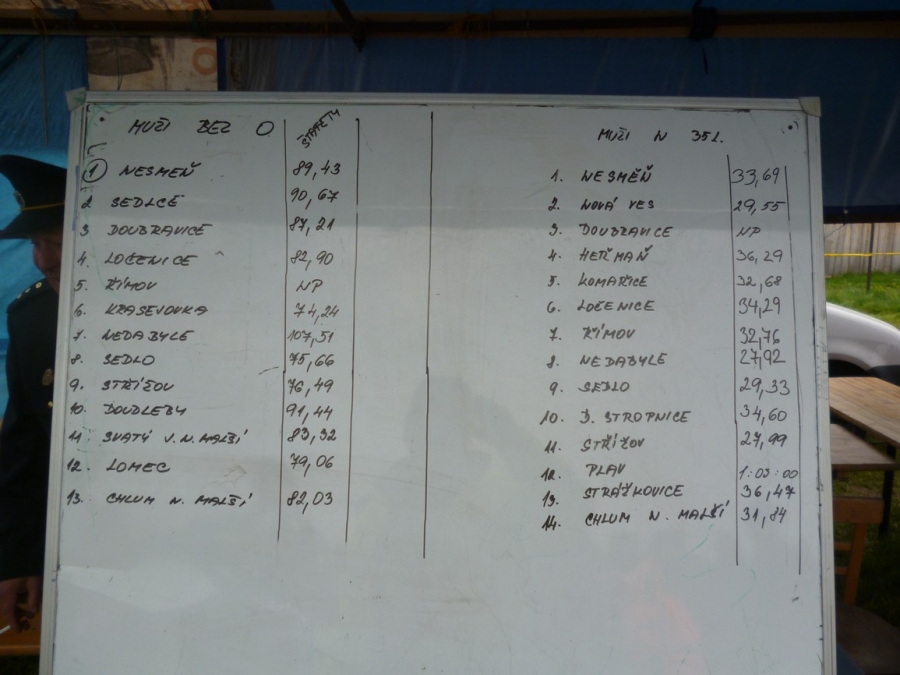 MUŽI BEZ O ŠTAFETY
1 NESMEŇ 89,43
2 SEDLCE 90,67
3 DOUBRAVICE 87,21
4. LOČENICE 82,90
5. ŘÍMOV NP
6. KRASEVOVKA 74,24
7. NEDABYLE 107,51
8. SEDLO 75,66
9. STŘÍŽOV 76,49
10. DOUDLEBY 91,44
11. SVATÝ J.N.MALŠÍ 83,32
12. LOMEC 79,06
13. CHLUM N. MALŠÍ 82,03
MUŽI N 35L.
1. NESMĚŇ 33,69
2. NOVÁ VES 29,55
3. DOUBRAVICE NP
4. HEŘMAŇ 36,29
5. KOMAŘICE 32,68
6. LOČENICE 34,29
7. ŘÍMOV 32,76
8. NEDABYLE 27,92
9. SEDLO 29,33
10. D. STROPNICE 34,60
11. STŘÍŽOV 27,99
12. PLAV 1:03:00
13. STRÁŽKOVICE 36,47
14. CHLUM N. MALŠÍ 31,84